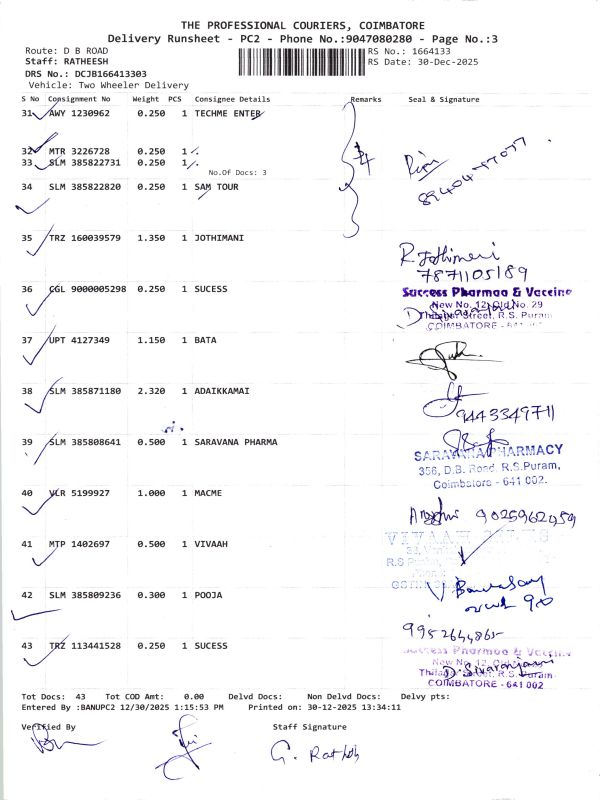 THE PROFESSIONAL COURIERS, COIMBATORE
Delivery Runsheet - PC2 - Phone No.:9047080280 - Page No.:3
Route: D B ROAD RS No.: 1664133
Staff: RATHEESH RS Date: 30-Dec-2025
DRS No.: DCJB166413303
Vehicle: Two Wheeler Delivery
S No Consignment No Weight PCS Consignee Details Remarks Seal & Signature
31 AWY 1230962 0.250 1 TECHME ENTER
32 MTR 3226728 0.250 1 .
33 SLM 385822731 0.250 1 .
No.Of Docs: 3
34 SLM 385822820 0.250 1 SAM TOUR
35 TRZ 160039579 1.350 1 JOTHIMANI
R. Jothimani
7871105189
36 CGL 9000005298 0.250 1 SUCESS
Success Pharmaa & Vaccine
New No. 12, Old No. 29
Thilagar Street, R.S. Puram
COIMBATORE - 641 002
37 UPT 4127349 1.150 1 BATA
38 SLM 385871180 2.320 1 ADAIKKAMAI
9443349711
39 SLM 385808641 0.500 1 SARAVANA PHARMA
SARAVANA PHARMACY
356, D.B. Road, R.S.Puram,
Coimbatore - 641 002.
40 VLR 5199927 1.000 1 MACME
9025962959
41 MTP 1402697 0.500 1 VIVAAH
VIVAAH
R.S
42 SLM 385809236 0.300 1 POOJA
9952644865
43 TRZ 113441528 0.250 1 SUCESS
Success Pharmaa & Vaccine
New No. 12, Old
Thilagar Street, R.S. Puram
D. Sivaranjani
COIMBATORE - 641 002
Tot Docs: 43 Tot COD Amt: 0.00 Delvd Docs: Non Delvd Docs: Delvy pts:
Entered By :BANUPC2 12/30/2025 1:15:53 PM Printed on: 30-12-2025 13:34:11
Verified By Staff Signature
G. Rathesh